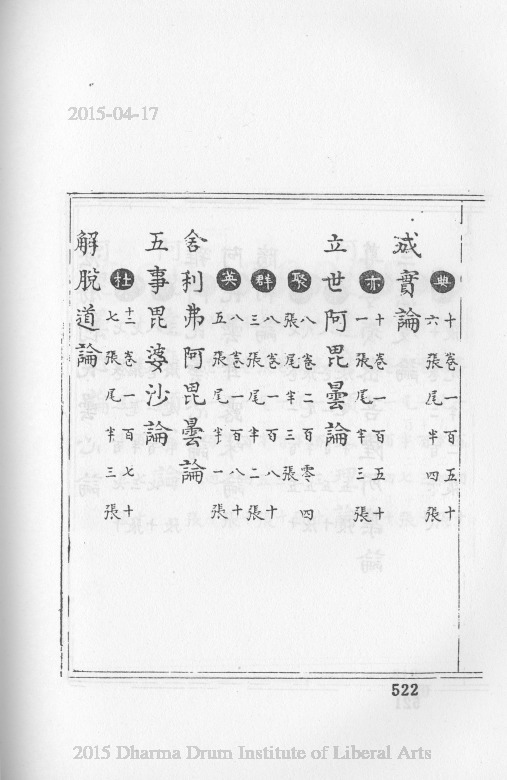 2015-04-17
典
十卷一百五十
六張尾半四張
成實論
亦
十卷一百五十
一張尾半三張
立世阿毘曇論
聚
八卷二百零四
張尾半三張
群
八卷一百八十
三張尾半二張
英
八卷一百八十
五張尾半一張
舍利弗阿毘曇論
五事毘婆沙論
杜
十二卷一百七十
七張尾半三張
解脫道論
522
2015 Dharma Drum Institute of Liberal Arts